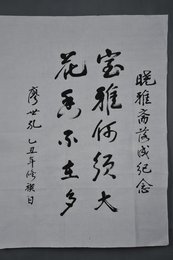 晚雅斋落成纪念
室雅何须大
花香不在多
廖世礼 乙丑年修禊日